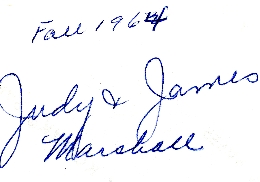 Fall 1964
Judy & James
Marshall